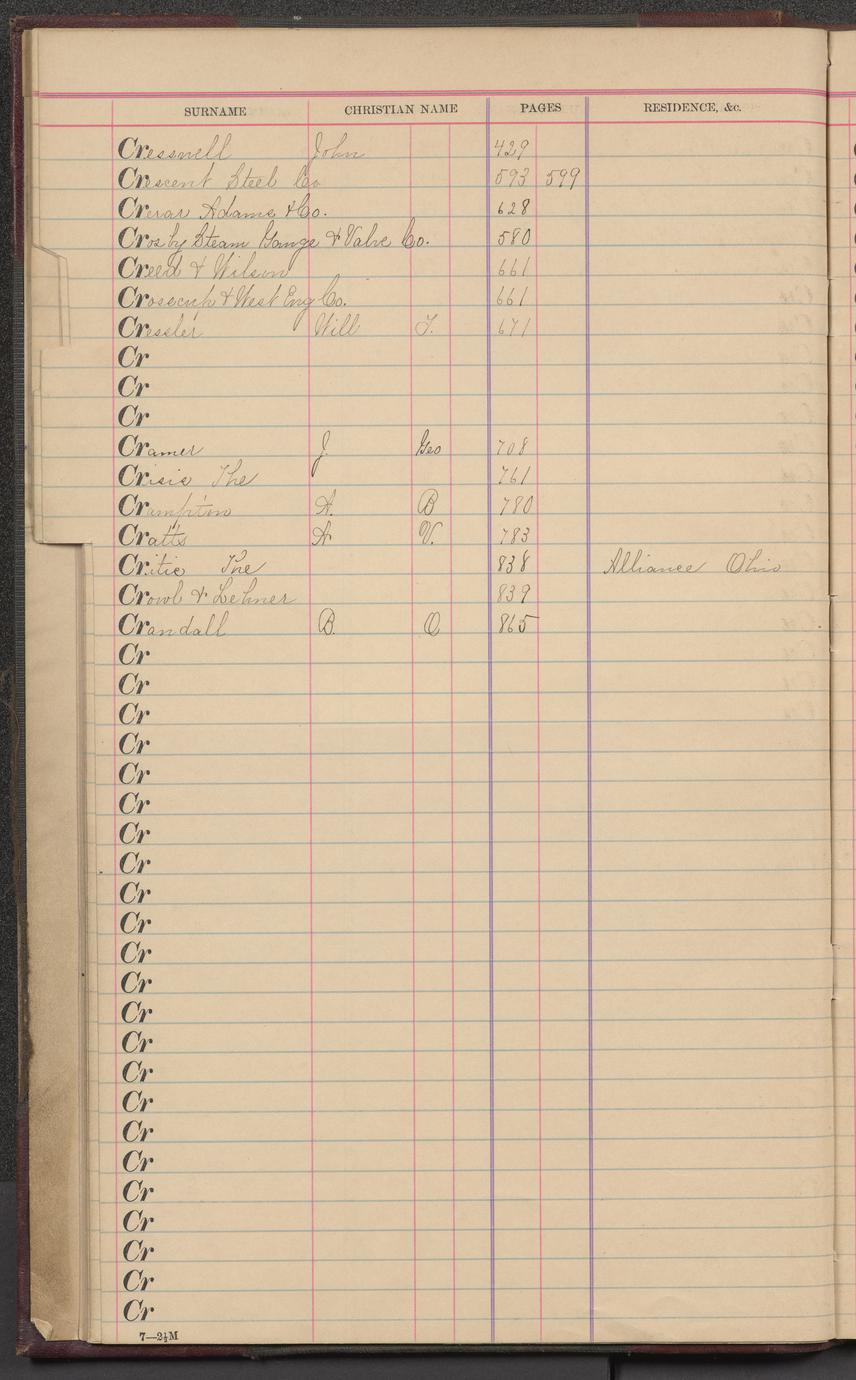 SURNAME CHRISTIAN NAME PAGES RESIDENCE, &c.
Cresswell John 429
Crescent Steel Co 593 599
Crerar Adams & Co. 628
Crosby Steam Gauge & Valve Co. 580
Creed & Wilson 661
& West Eng Co. 661
Cressler Will 671
Cr
Cr
Cr
Cramer J. Geo 708
Crisis The 761
Crampton A. B 780
Cratts A V. 783
Critic The 838 Alliance Ohio
Crowl & Lehner 839
Crandall B. O 865
Cr
Cr
Cr
Cr
Cr
Cr
Cr
Cr
Cr
Cr
Cr
Cr
Cr
Cr
Cr
Cr
Cr
Cr
Cr
Cr
Cr
Cr
Cr
7—2½M